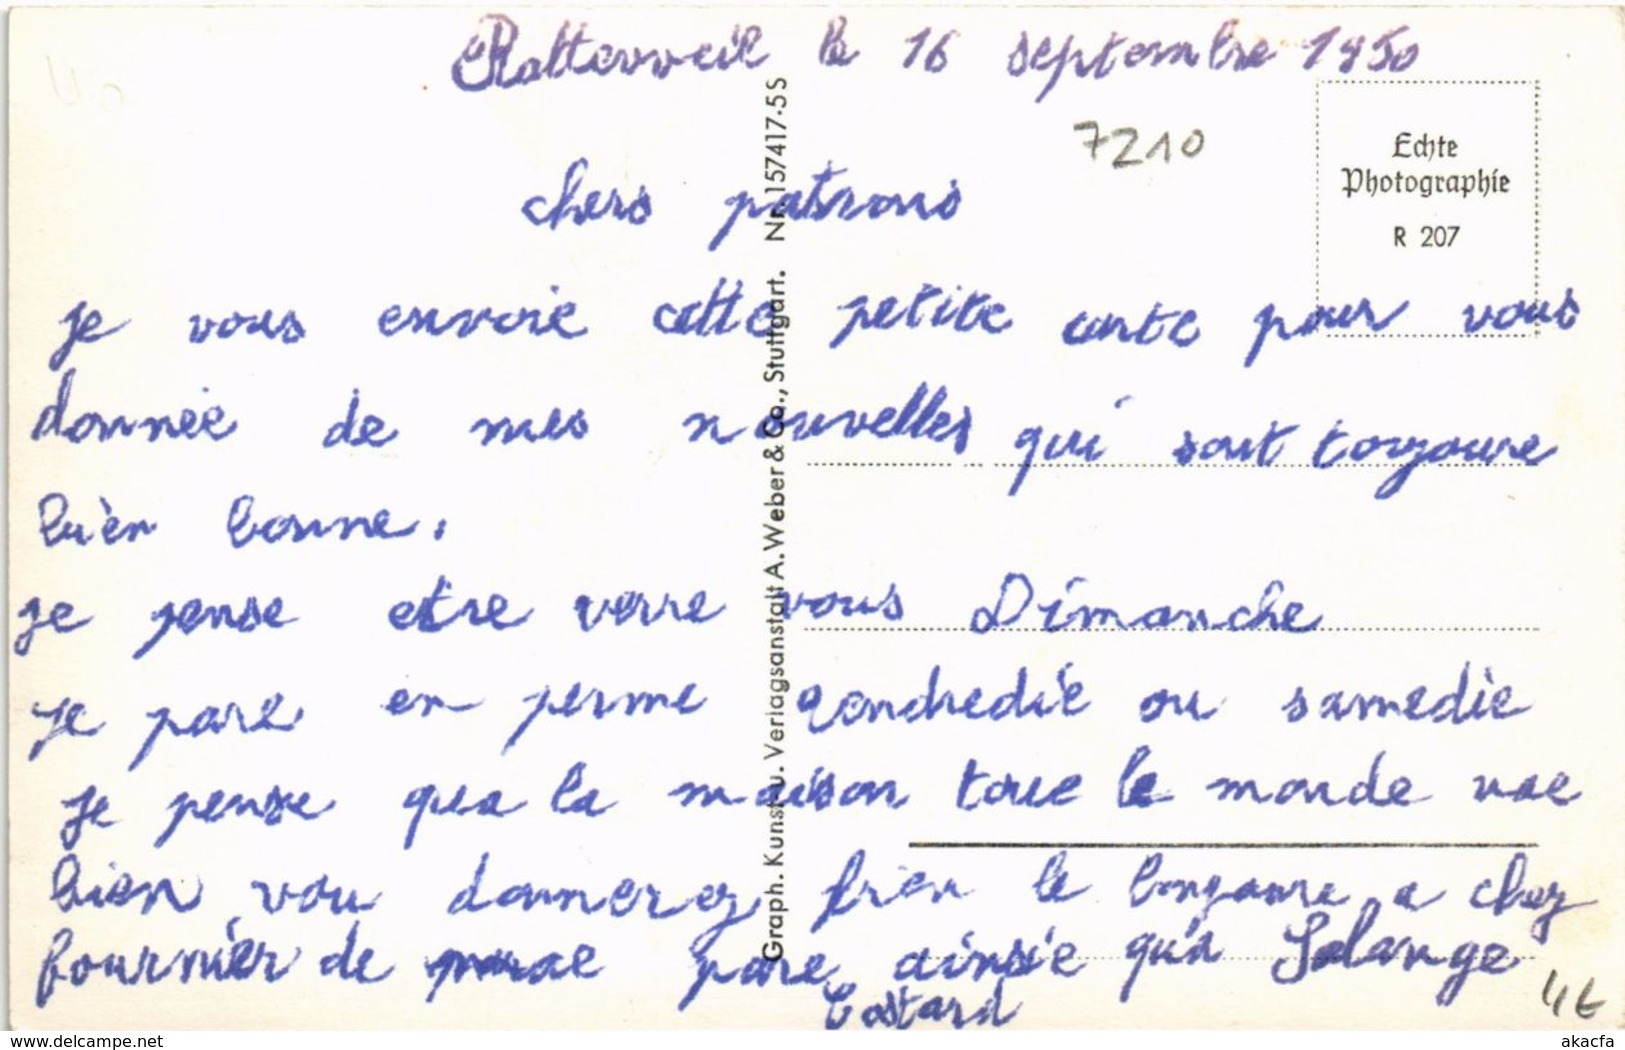 Rotterveil le 16 septembre 1950
7210
Echte
Photographie
R 207
chers patrons
je vous envoie cette petite carte pour vous
donnée de mes nouvelles qui sont toujoure
bien bonne.
je pense etre verre vous Dimanche
je pare en perme vendredie ou samedie
je pense qua la maison toue le monde vae
bien vou donnerez bien le bonjoure a chez
fournier de mae pare ainsie qu'a Solange
Costard
4€
Graph. Kunst u. Verlagsanstalt A. Weber & Co., Stuttgart. Nr. 157417-5 S
www.delcampe.net
akacfa